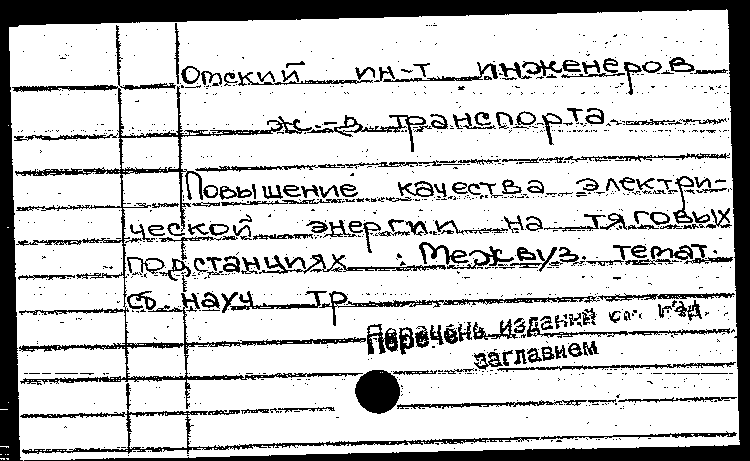 Омский ин-т инженеров
ж.-д. транспорта.
Повышение качества электри-
ческой энергии на тяговых
подстанциях : Межвуз. темат.
сб. науч. тр.
Перечень изданий см. под
заглавием